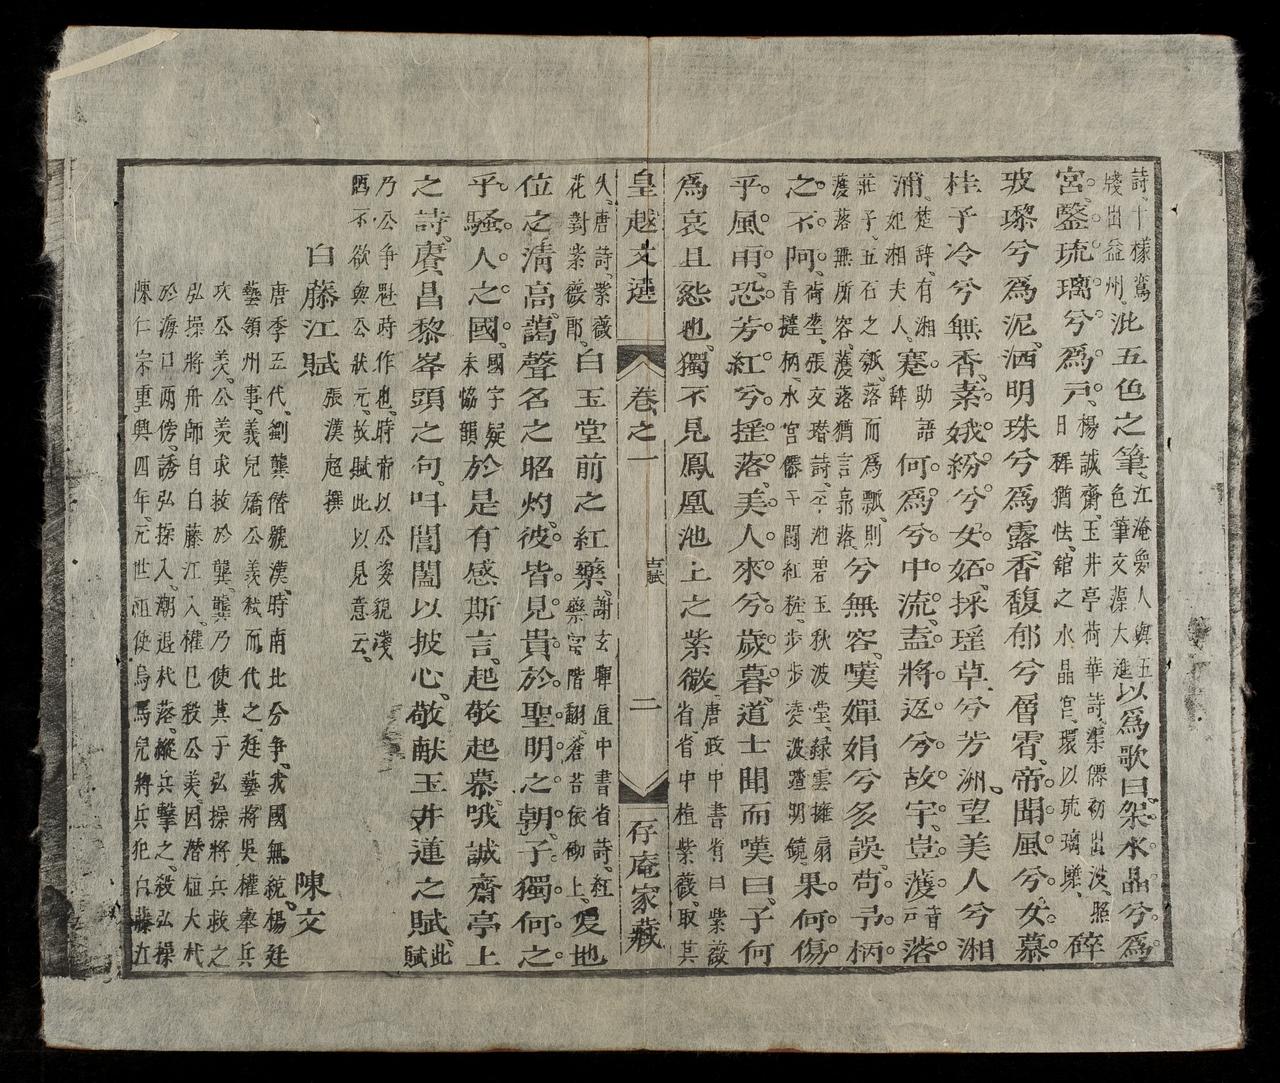 詩、十樣鸞牋出益州、泚五色之筆、江淹夢人與五色筆文藻大進以爲歌曰、架水晶兮爲
宮、鑿琉璃兮爲戸、楊誠齋、玉井亭荷華詩、渠儂初出波、照日穉猶怯、舘之水晶宮、環以琉璃㙮、碎
玻瓈兮爲泥、洒明珠兮爲露、香馥郁兮層霄、帝聞風兮女慕
桂子冷兮無香、素娥紛兮女妬、採瑤草兮芳洲、望美人兮湘
浦、楚辭、有湘妃湘夫人、蹇助語辭何爲兮中流、盍將返兮故宇、豈濩音㦯落
莊子、五石之瓠落而爲瓢、則濩落無所容、濩落猶言廓落、兮無容、嘆嬋娟兮多誤、苟予柄
之不阿、荷莖、張文瓚詩、平池碧玉秋波瑩、綠雲擁扇青搖柄、水宮僊子鬪紅粧、步步淩波踏明鏡、果何傷
乎風雨、恐芳紅兮搖落、美人來兮歲暮、道士聞而嘆曰、子何
爲哀且怨也、獨不見鳳凰池上之紫薇、唐政中書省曰紫薇省、省中植紫薇、取其
皇越文選 卷之一 古賦 二 存庵家藏
久、唐詩、紫薇花對紫薇郎、白玉堂前之紅藥、謝玄暉直中書省詩、紅藥當階翻、蒼苔依砌上、爰地
位之淸高、藹聲名之昭灼、彼皆見貴於聖明之朝、子獨何之
乎騷人之國、國字疑未恊韻於是有感斯言、起敬起慕、哦誠齋亭上
之詩、賡昌黎峯頭之句、叫閶闔以披心、敬献玉井蓮之賦、此賦
乃公爭魁時作也、時帝以公姿貌淺陋不欲與公狀元、故賦此以見意云、
白藤江賦 張漢超撰 陳文
唐季五代、劉龑僭號漢、時南北分爭、我國無統、楊廷
藝領州事、義兒矯公羨弑而代之、廷藝將吳權舉兵
攻公羨、公羨求救於龑、龑乃使其子弘操將兵救之
弘操將舟師自白藤江入、權已殺公羨、因潛植大杙
於海口兩傍、誘弘操入、潮退杙落、縱兵擊之、殺弘操
陳仁宗重興四年、元世祖使烏馬兒將兵犯白藤江